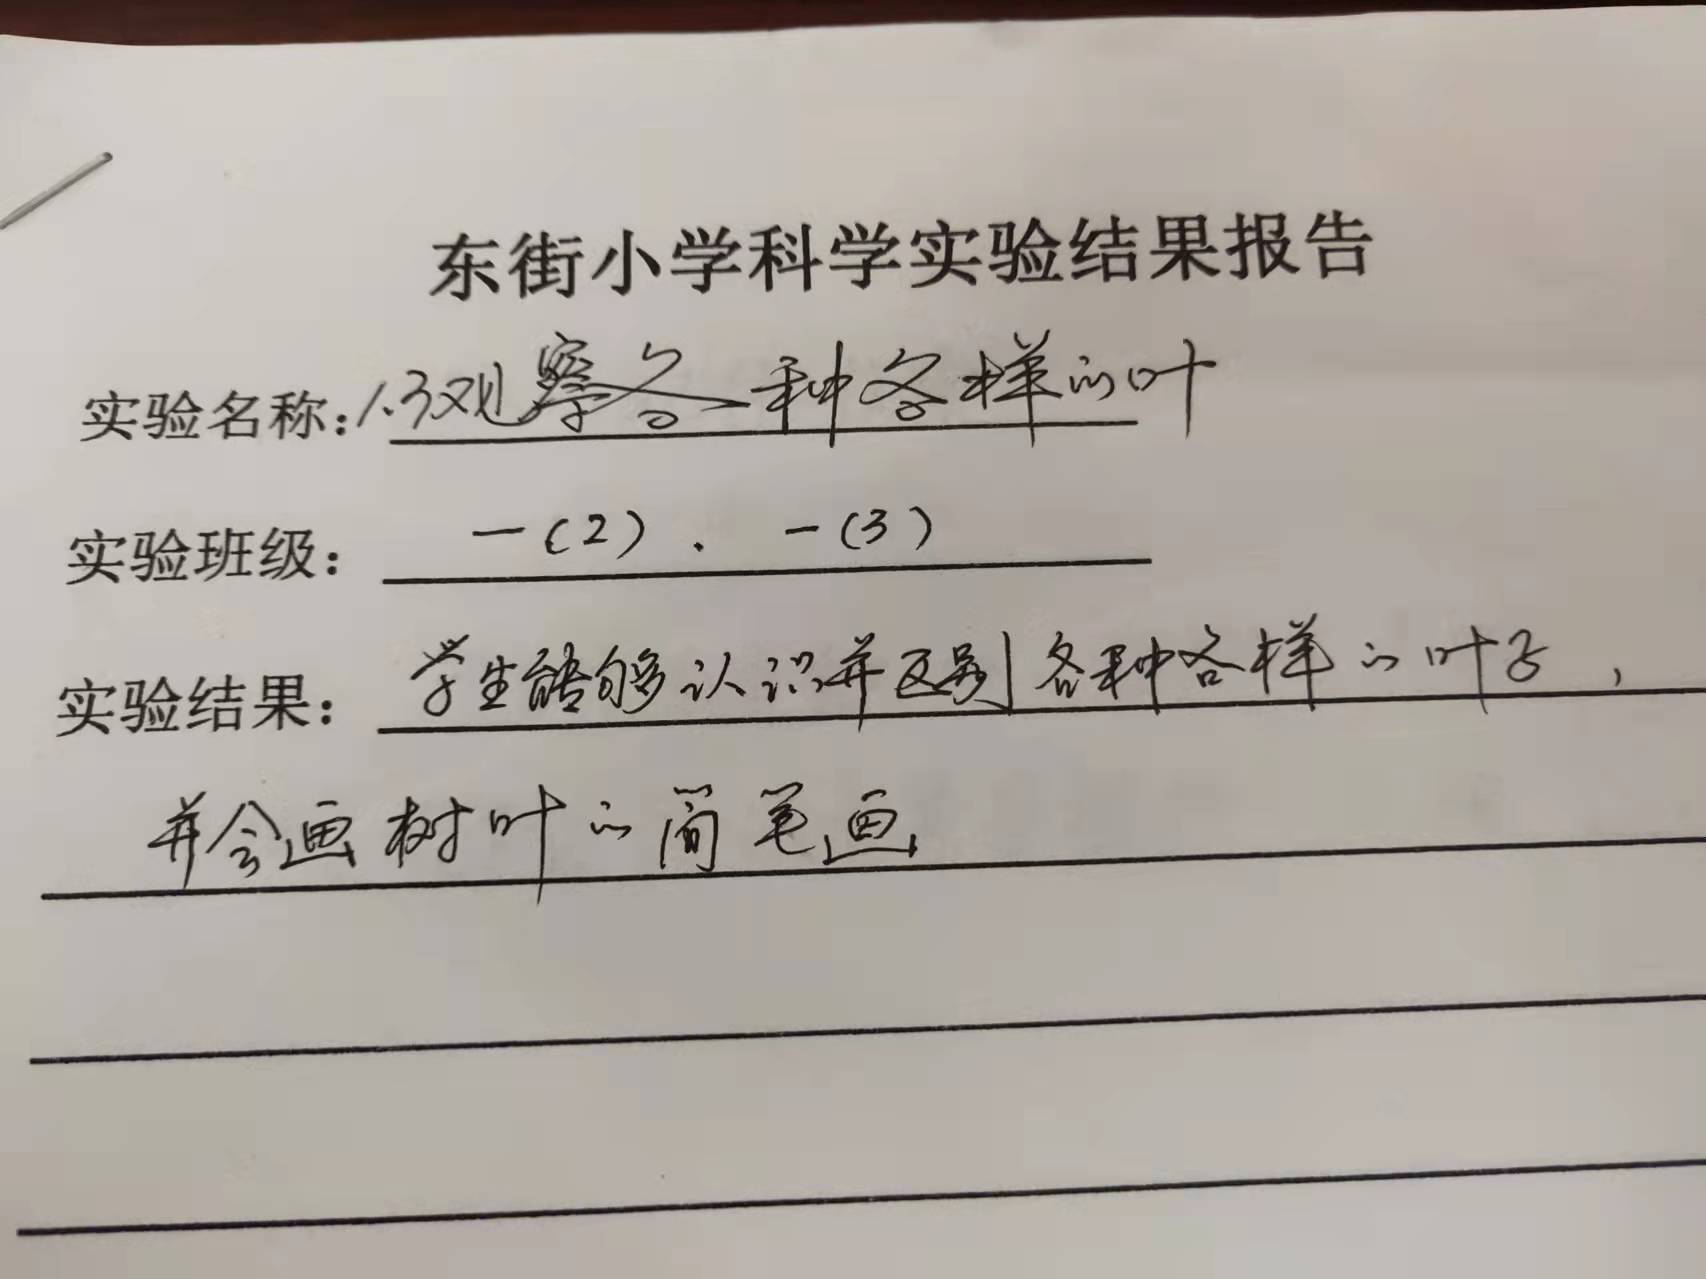 东街小学科学实验结果报告
实验名称：1.3观察各种各样的叶
实验班级： 一（2）. 一（3）
实验结果： 学生能够认识并区别各种各样的叶子，
并会画树叶的简笔画